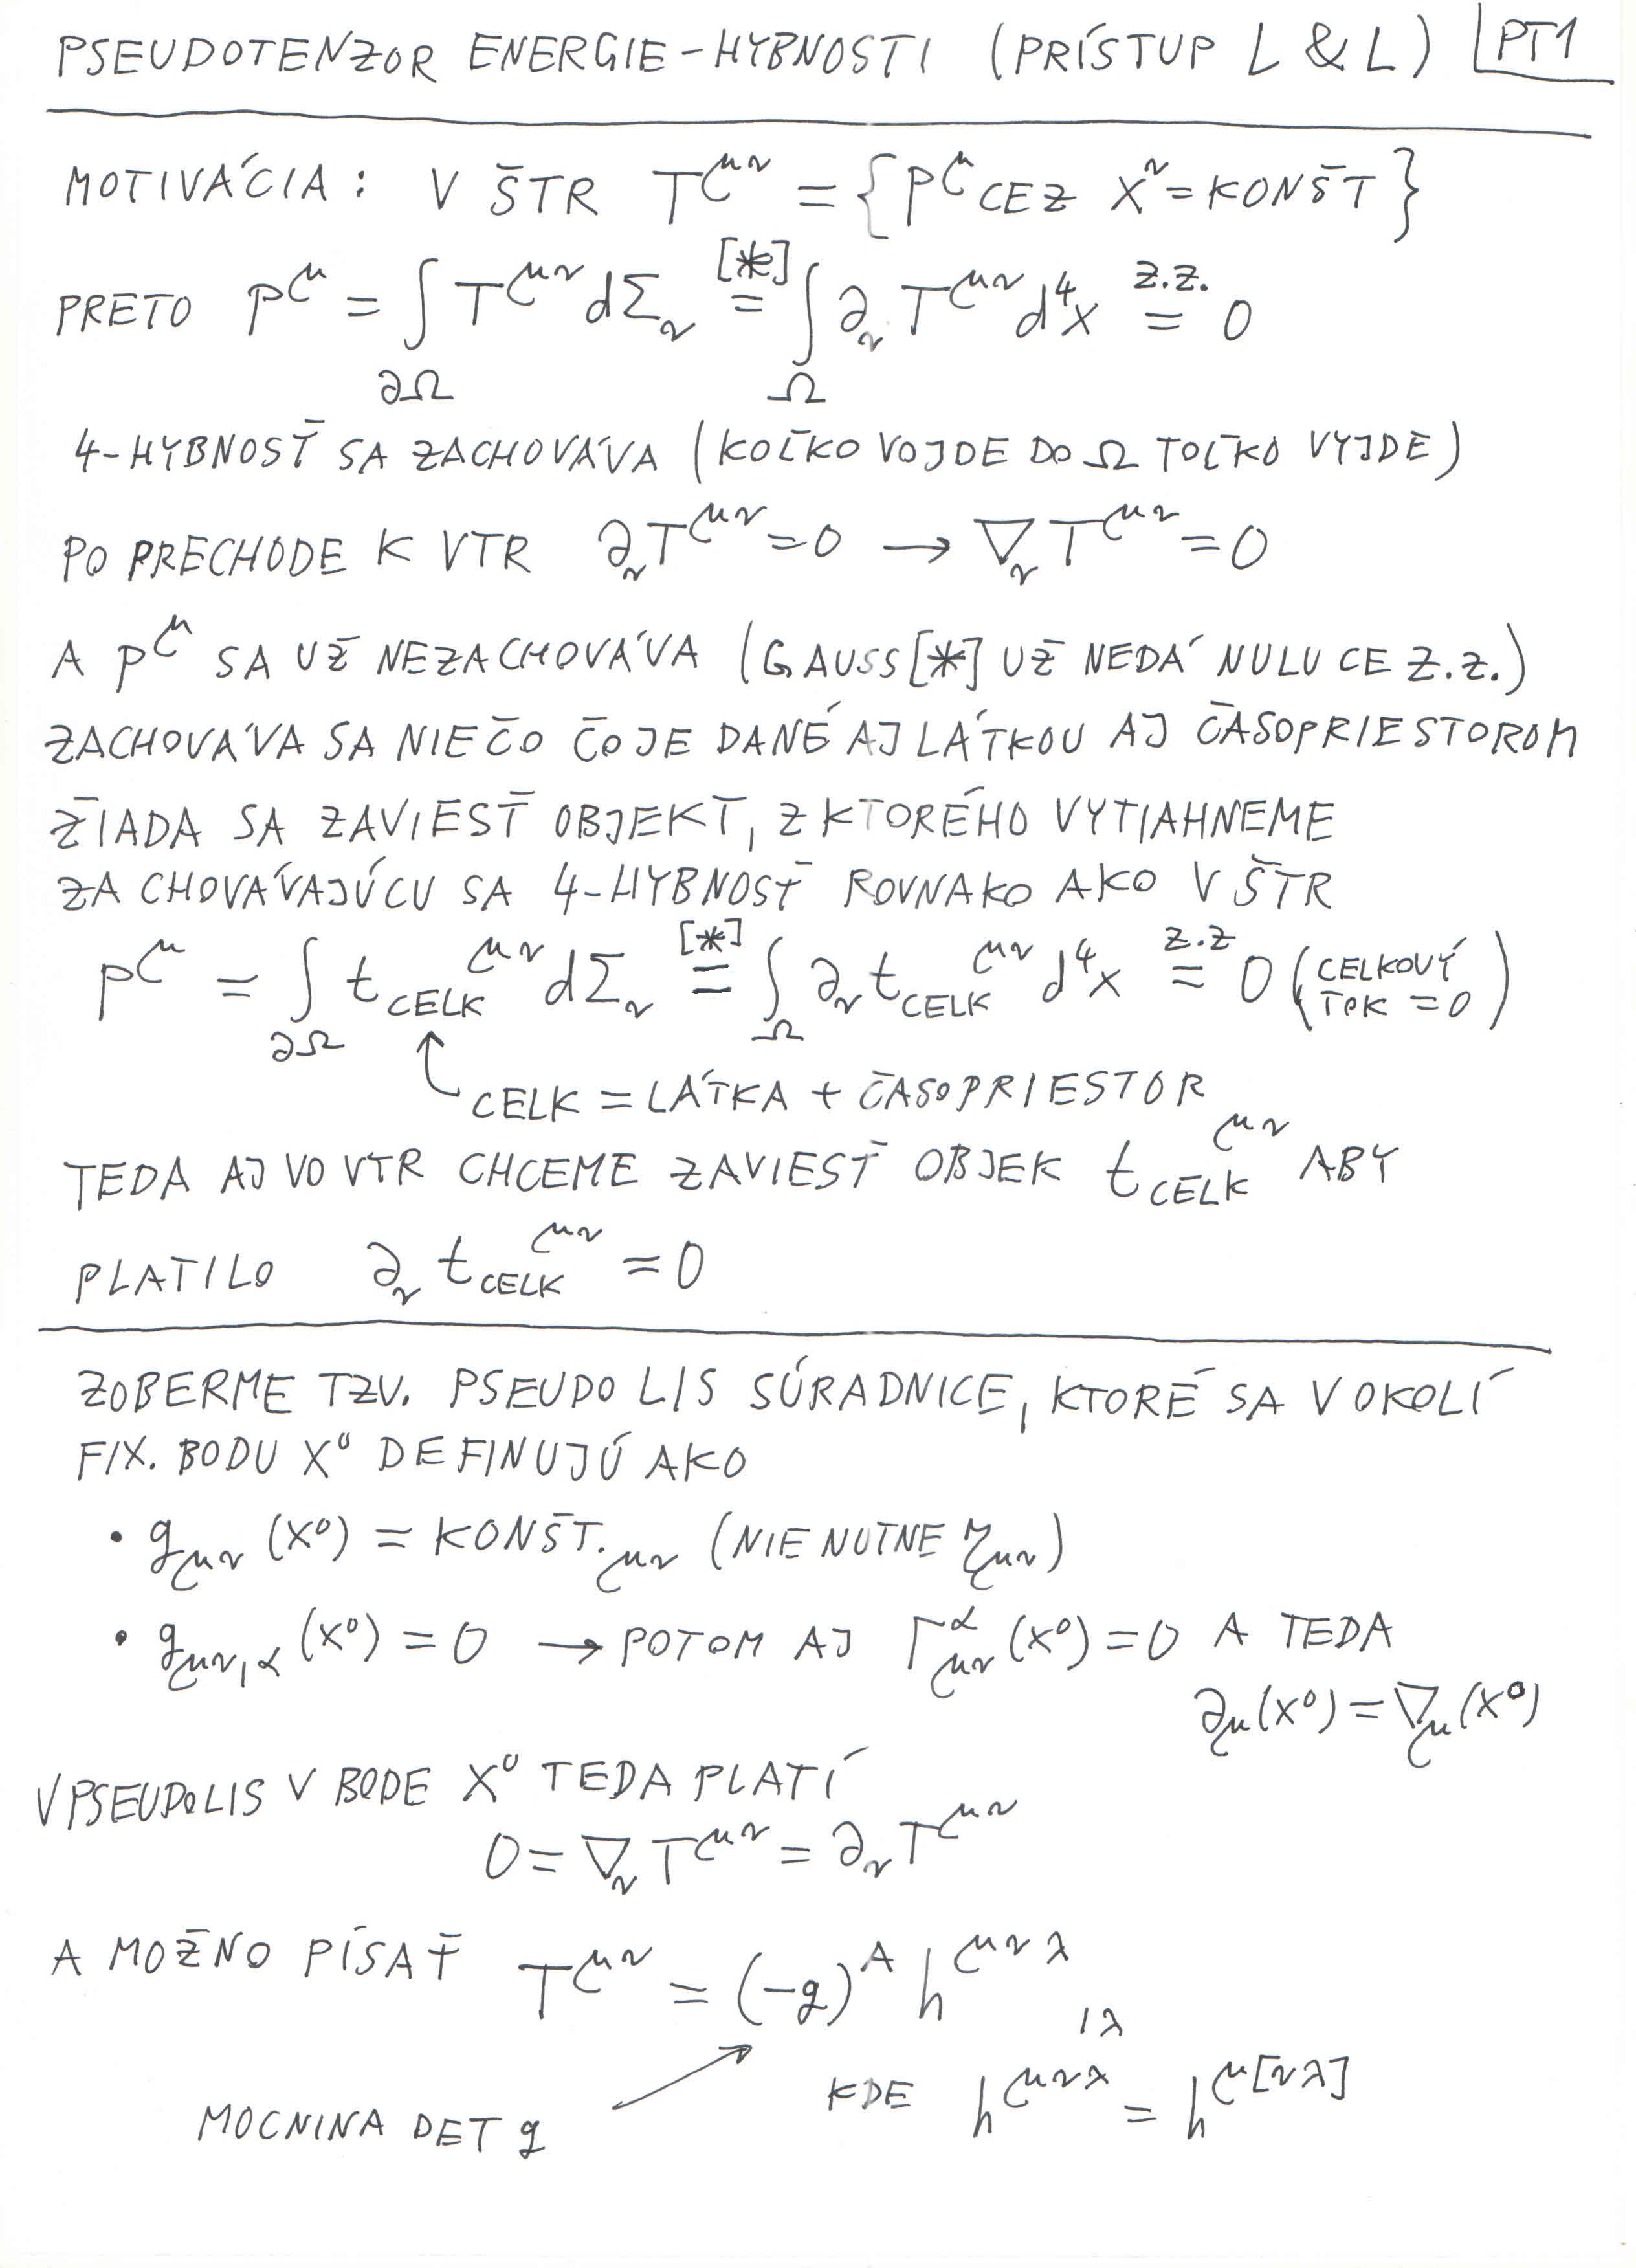 PSEUDOTENZOR ENERGIE-HYBNOSTI (PRÍSTUP L & L) PT1
MOTIVÁCIA: V ŠTR T^{μν} = {P^μ CEZ X^ν = KONŠT}
PRETO P^μ = ∫_{∂Ω} T^{μν} dΣ_ν =^{[*]} ∫_Ω ∂_ν T^{μν} d⁴x =^{Z.Z.} 0
4-HYBNOSŤ SA ZACHOVÁVA (KOĽKO VOJDE DO Ω TOĽKO VYJDE)
PO PRECHODE K VTR ∂_ν T^{μν} = 0 → ∇_ν T^{μν} = 0
A P^μ SA UŽ NEZACHOVÁVA (GAUSS [*] UŽ NEDÁ NULU CE Z.Z.)
ZACHOVÁVA SA NIEČO ČO JE DANÉ AJ LÁTKOU AJ ČASOPRIESTOROM
ŽIADA SA ZAVIESŤ OBJEKT, Z KTORÉHO VYTIAHNEME
ZACHOVÁVAJÚCU SA 4-HYBNOSŤ ROVNAKO AKO V ŠTR
P^μ = ∫_{∂Ω} t_{CELK}^{μν} dΣ_ν =^{[*]} ∫_Ω ∂_ν t_{CELK}^{μν} d⁴x =^{Z.Z} 0 (CELKOVÝ TOK = 0)
CELK = LÁTKA + ČASOPRIESTOR
TEDA AJ VO VTR CHCEME ZAVIESŤ OBJEK t_{CELK}^{μν} ABY
PLATILO ∂_ν t_{CELK}^{μν} = 0
ZOBERME TZV. PSEUDO LIS SÚRADNICE, KTORÉ SA V OKOLÍ
FIX. BODU X⁰ DEFINUJÚ AKO
• g_{μν} (X⁰) = KONŠT._{μν} (NIE NUTNE η_{μν})
• g_{μν,α} (X⁰) = 0 → POTOM AJ Γ^α_{μν} (X⁰) = 0 A TEDA
∂_μ (X⁰) = ∇_μ (X⁰)
V PSEUDOLIS V BODE X⁰ TEDA PLATÍ
0 = ∇_ν T^{μν} = ∂_ν T^{μν}
A MOŽNO PÍSAŤ T^{μν} = (-g)^A h^{μνλ}_{,λ}
KDE h^{μνλ} = h^{μ[νλ]}
MOCNINA DET g